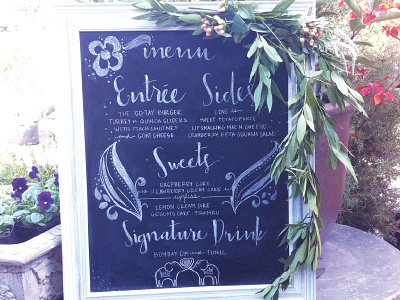 menu
Entrée Sides
THE "GO-TAY" BURGER
TURKEY & QUINOA SLIDERS
WITH PEACH CHUTNEY
AND GOAT CHEESE
LOVE is
SWEET POTATO FRIES
LIP SMACKING MAC N CHEESE
CRANBERRY, FETA SQUASH SALAD
Sweets
RASPBERRY CAKE
STRAWBERRY CREAM CAKE
LEMON CREAM CAKE
GROOM'S CAKE
Signature Drink
BOMBAY GIN and TONIC